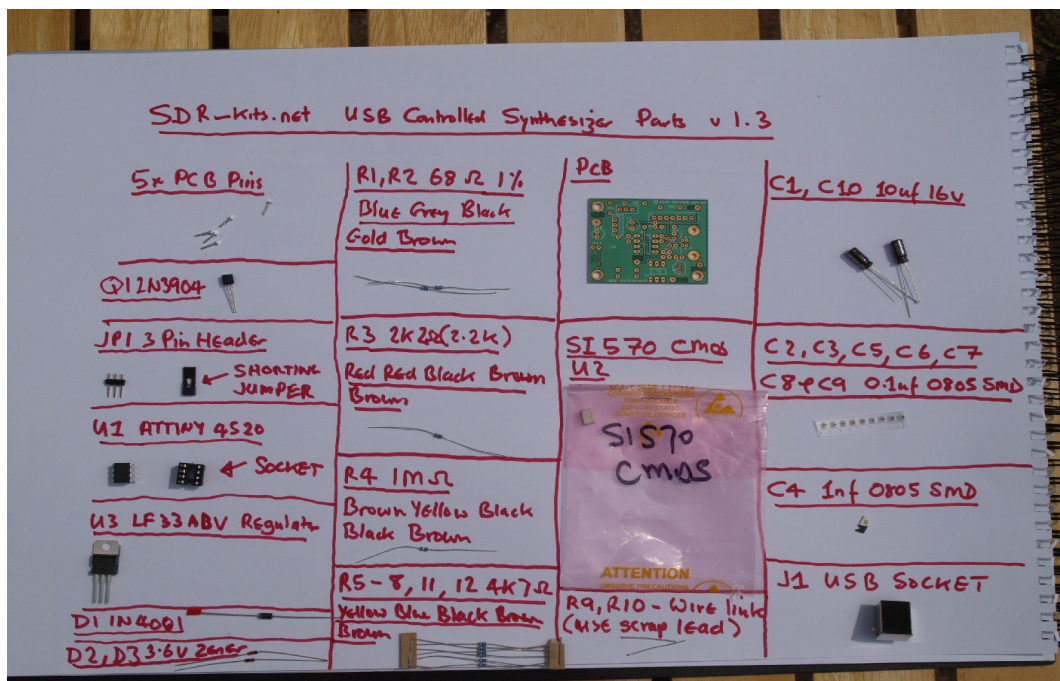 SDR-Kits.net USB Controlled Synthesizer Parts v 1.3
5x PCB Pins
Q1 2N3904
JP1 3 Pin Header
SHORTING
JUMPER
U1 ATTINY 4520
SOCKET
U3 LF33ABV Regulator
D1 1N4001
D2, D3 3.6V Zener
R1, R2 68 Ω 1%
Blue Grey Black
Gold Brown
R3 2K2Ω(2.2K)
Red Red Black Brown
Brown
R4 1MΩ
Brown Yellow Black
Black Brown
R5-8, 11, 12 4K7Ω
Yellow Blue Black Brown
Brown
PCB
SI570 CMOS
U2
SI570
CMOS
ATTENTION
OBSERVE PRECAUTIONS
R9, R10 - Wire link
(USE scrap lead)
C1, C10 10uf 16v
C2, C3, C5, C6, C7
C8 & C9 0.1uf 0805 SMD
C4 1nf 0805 SMD
J1 USB SOCKET